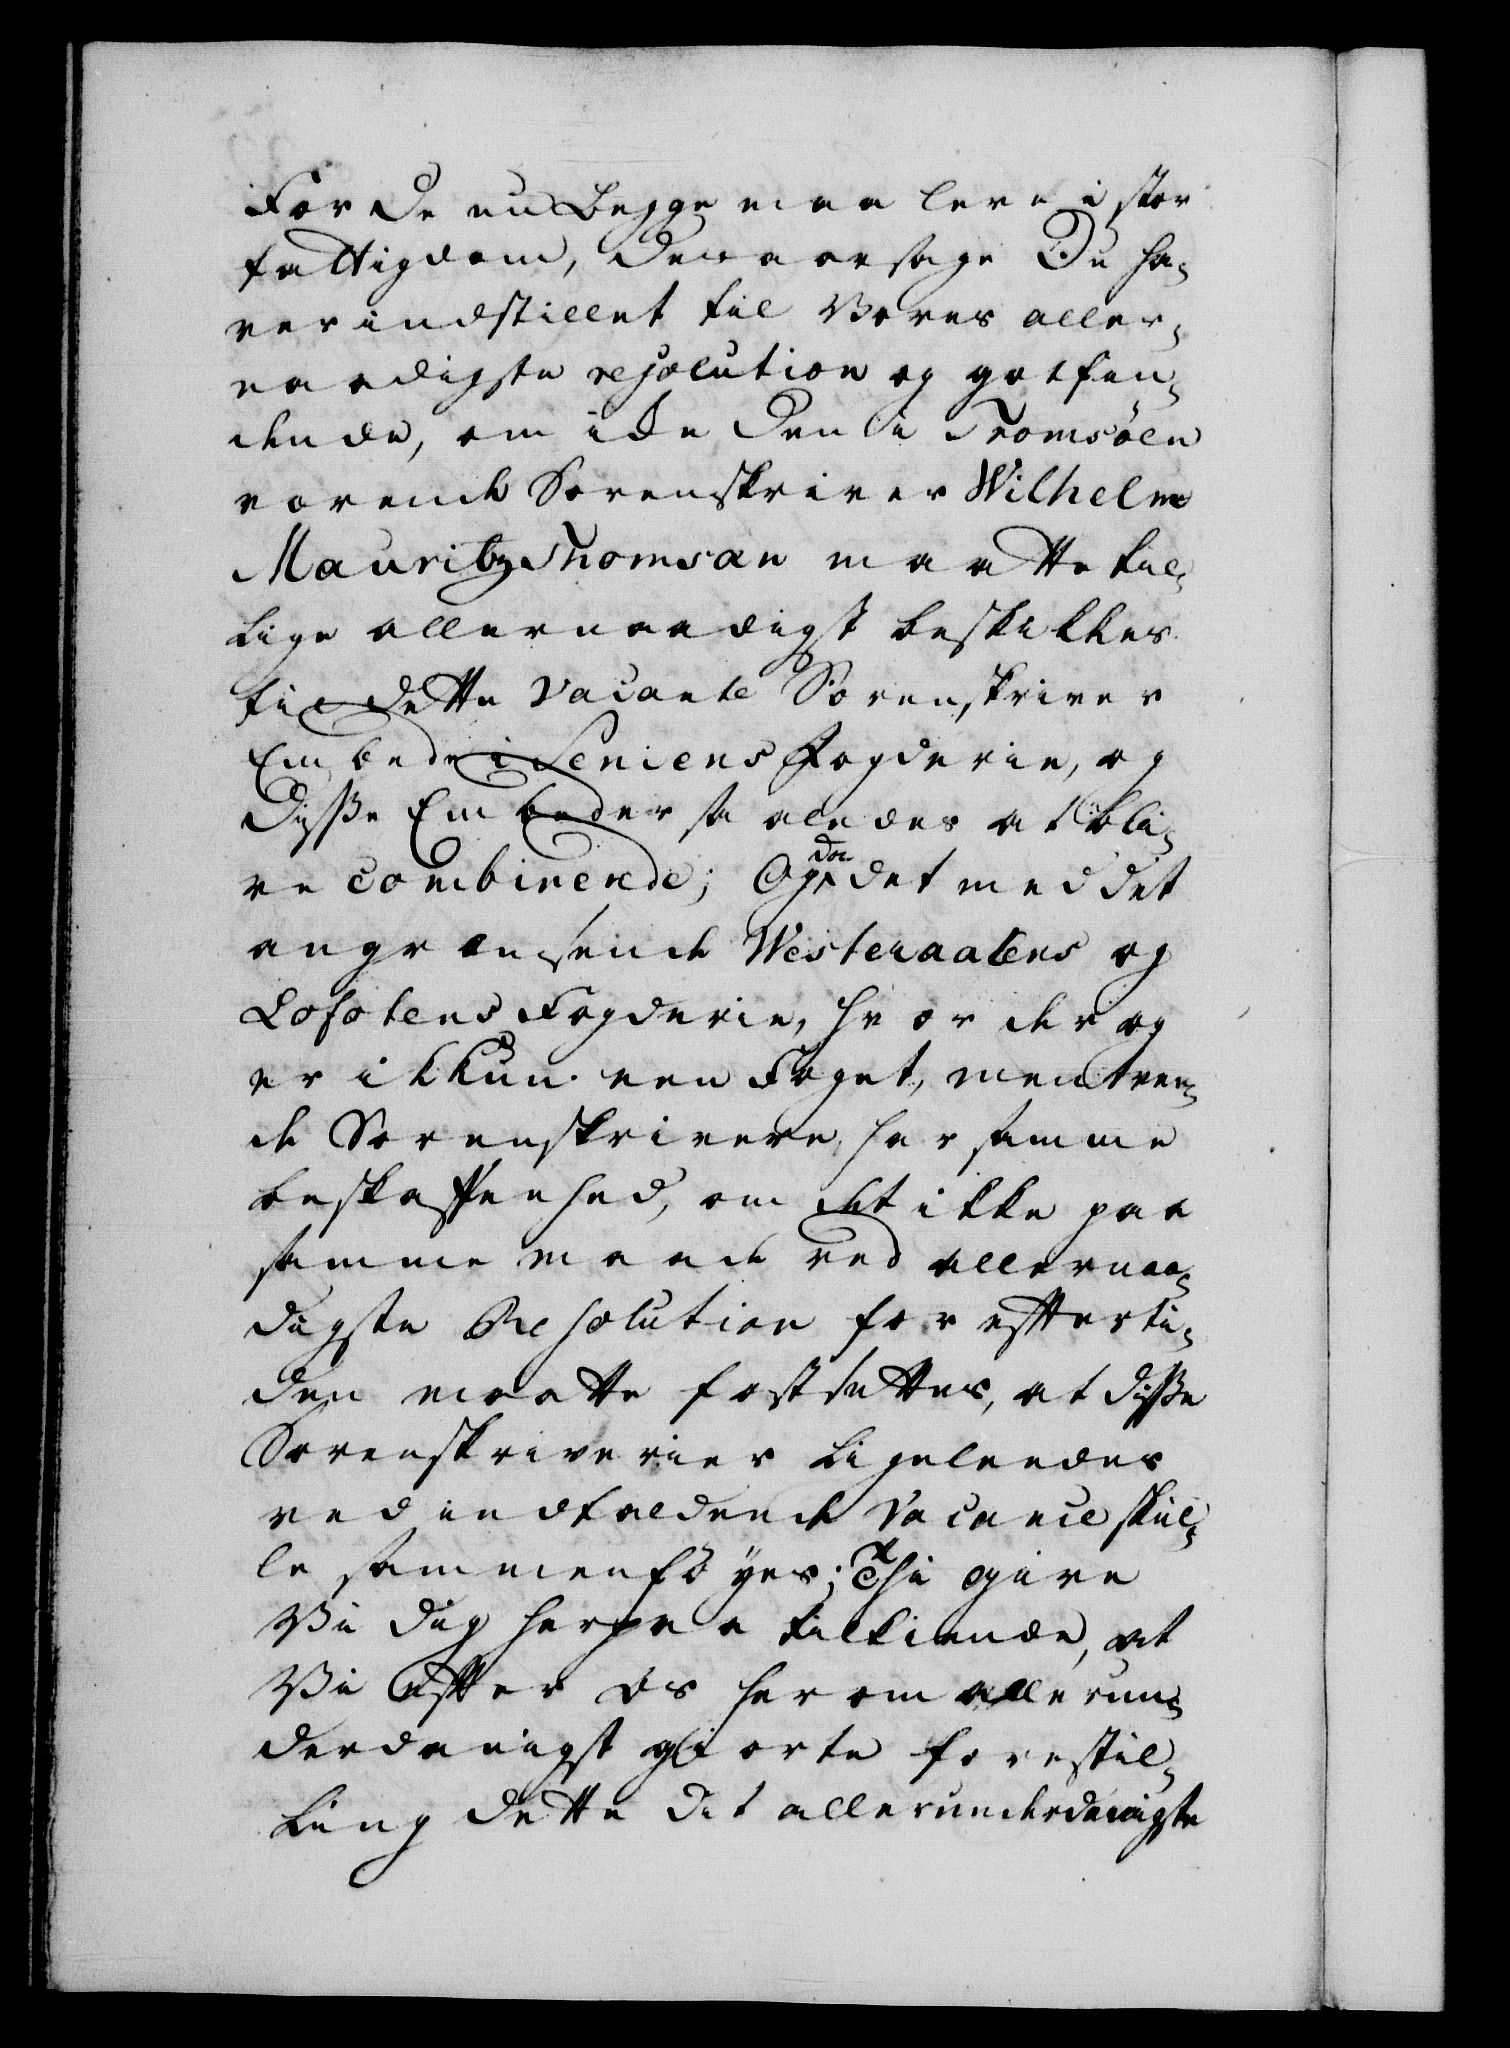 For De nu Begge maa leve i stor
fattigdom, Deraarsage Du ha-
ver indstillet til Vores aller-
naadigste resolution og gotfin-
dende, om ide den i Tromsöen
værende Sorenskriver Wilhelm
Mauritz Thomsan maatte til-
lige allernaadigst beskikkes
til dette vacante Sorenskriver
Embede i Seniens Fogderie, og
Disse Embeder saaledes at bli-
ve combinerede; Og da det med det
angrænsende Westeraalens og
Lofotens Fogderie, hvor der og
er ikkun een Foget, men tven-
de Sorenskrivere, har samme
beskaffenhed, om det ikke paa
samme maade ved allernaa-
digste Resolution for efterti-
den maatte fastsettes, at disse
Sorenskriverier ligeleedes
ved indfaldende Vacance skul-
le sammenföyes; Thi give
Vi dig herpaa tilkiende, at
Vi efter os herom allerun-
derdanigst giorte forestil-
ling dette dit allerunderdanigste